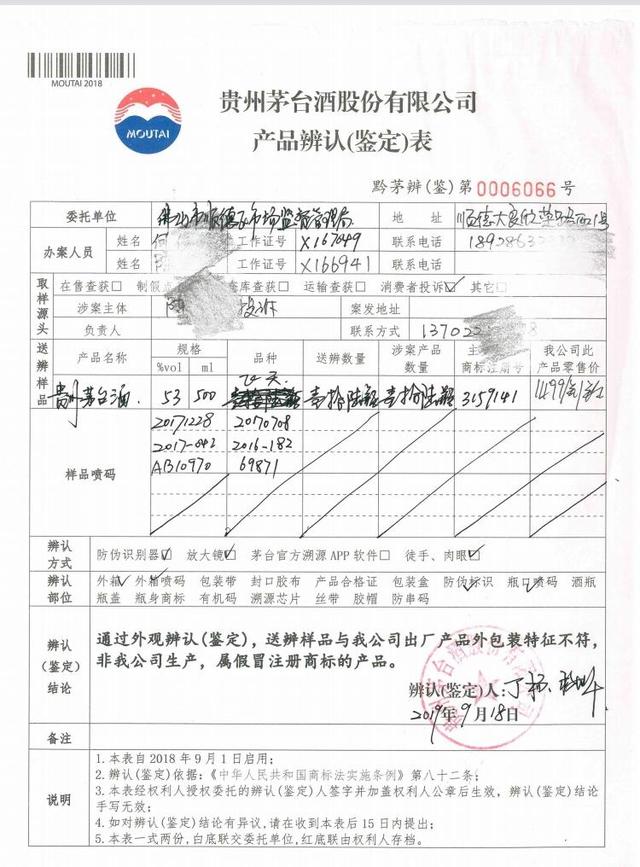 MOUTAI 2018
MOUTAI
贵州茅台酒股份有限公司
产品辨认(鉴定)表
黔茅辨(鉴)第0006066号
委托单位 佛山市顺德区市场监督管理局 地 址 顺德大良
办案人员 姓名 何 工作证号 X167049 联系电话
姓名 陈 工作证号 X166941 联系电话
取样源头 在售查获□ 制假 仓库查获□ 运输查获□ 消费者投诉☑ 其它□
涉案主体 陈 投诉 案发地址
负责人 联系方式 13702
送辨样品 产品名称 规格 %vol ml 品种 送辨数量 涉案产品数量 商标注册号 我公司此产品零售价
贵州茅台酒 53 500 飞天 壹拾陆瓶 壹拾陆瓶 3159141 1499元/瓶
样品喷码 20171228 20170708
2017-042 2016-182
AB10970 69871
辨认方式 防伪识别器☑ 放大镜☑ 茅台官方溯源APP软件□ 徒手、肉眼☑
辨认部位 外箱 外箱喷码 包装带 封口胶布 产品合格证 包装盒 防伪标识 瓶口喷码 酒瓶
瓶盖 瓶身商标 有机码 溯源芯片 丝带 胶帽 防串码
辨认(鉴定)结论 通过外观辨认(鉴定)，送辨样品与我公司出厂产品外包装特征不符，
非我公司生产，属假冒注册商标的产品。
辨认(鉴定)人:
2019年9月18日
备注
说明 1.本表自2018年9月1日启用；
2.辨认(鉴定)依据:《中华人民共和国商标法实施条例》第八十二条；
3.本表经权利人授权委托的辨认(鉴定)人签字并加盖权利人公章后生效，辨认(鉴定)结论
手写无效；
4.如对辨认(鉴定)结论有异议,请在收到本表后15日内提出；
5.本表一式两份,白底联交委托单位,红底联由权利人存档。